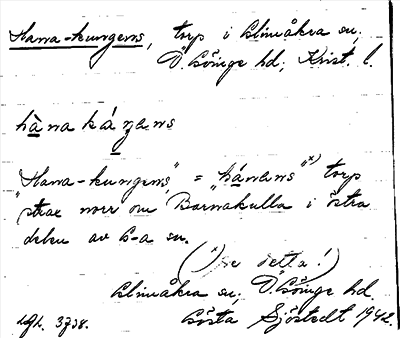 Hana-kungens, torp i Glimåkra sn,
Ö. Göinge hd; Krist. l.
hàna káŋans
"Hana-kungens," = "hánans" x) torp
strax norr om Barnakulla i östra
delen av G-a sn.
( x) se detta! )
Glimåkra sn, Ö. Göinge hd.
Gösta Sjöstedt 1942.
3738.